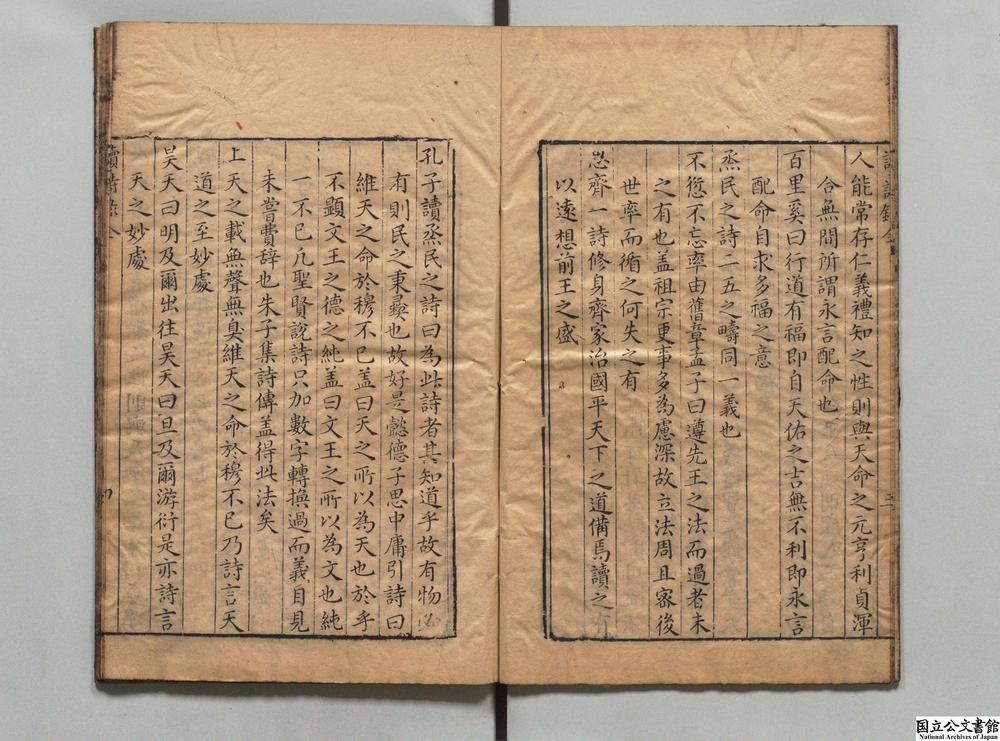 人能常存仁義禮知之性則與天命之元亨利貞渾
合無間所謂永言配命也
百里奚曰行道有福即自天佑之吉無不利即永言
配命自求多福之意
烝民之詩二五之疇同一義也
不愆不忘率由舊章孟子曰遵先王之法而過者未
之有也蓋祖宗更事多為慮深故立法周且密後
世率而循之何失之有
思齊一詩修身齊家治國平天下之道備焉讀之
以遠想前王之盛
孔子讀烝民之詩曰為此詩者其知道乎故有物必
有則民之秉彞也故好是懿德子思中庸引詩曰
維天之命於穆不已蓋曰天之所以為天也於乎
不顯文王之德之純蓋曰文王之所以為文也純
一不已凡聖賢說詩只加數字轉換過而義自見
未嘗費辞也朱子集詩傳蓋得此法矣
上天之載無聲無臭維天之命於穆不已乃詩言天
道之至妙處
昊天曰明及爾出往昊天曰旦及爾游衍是亦詩言
天之妙處
讀詩録全
国立公文書館
National Archives of Japan